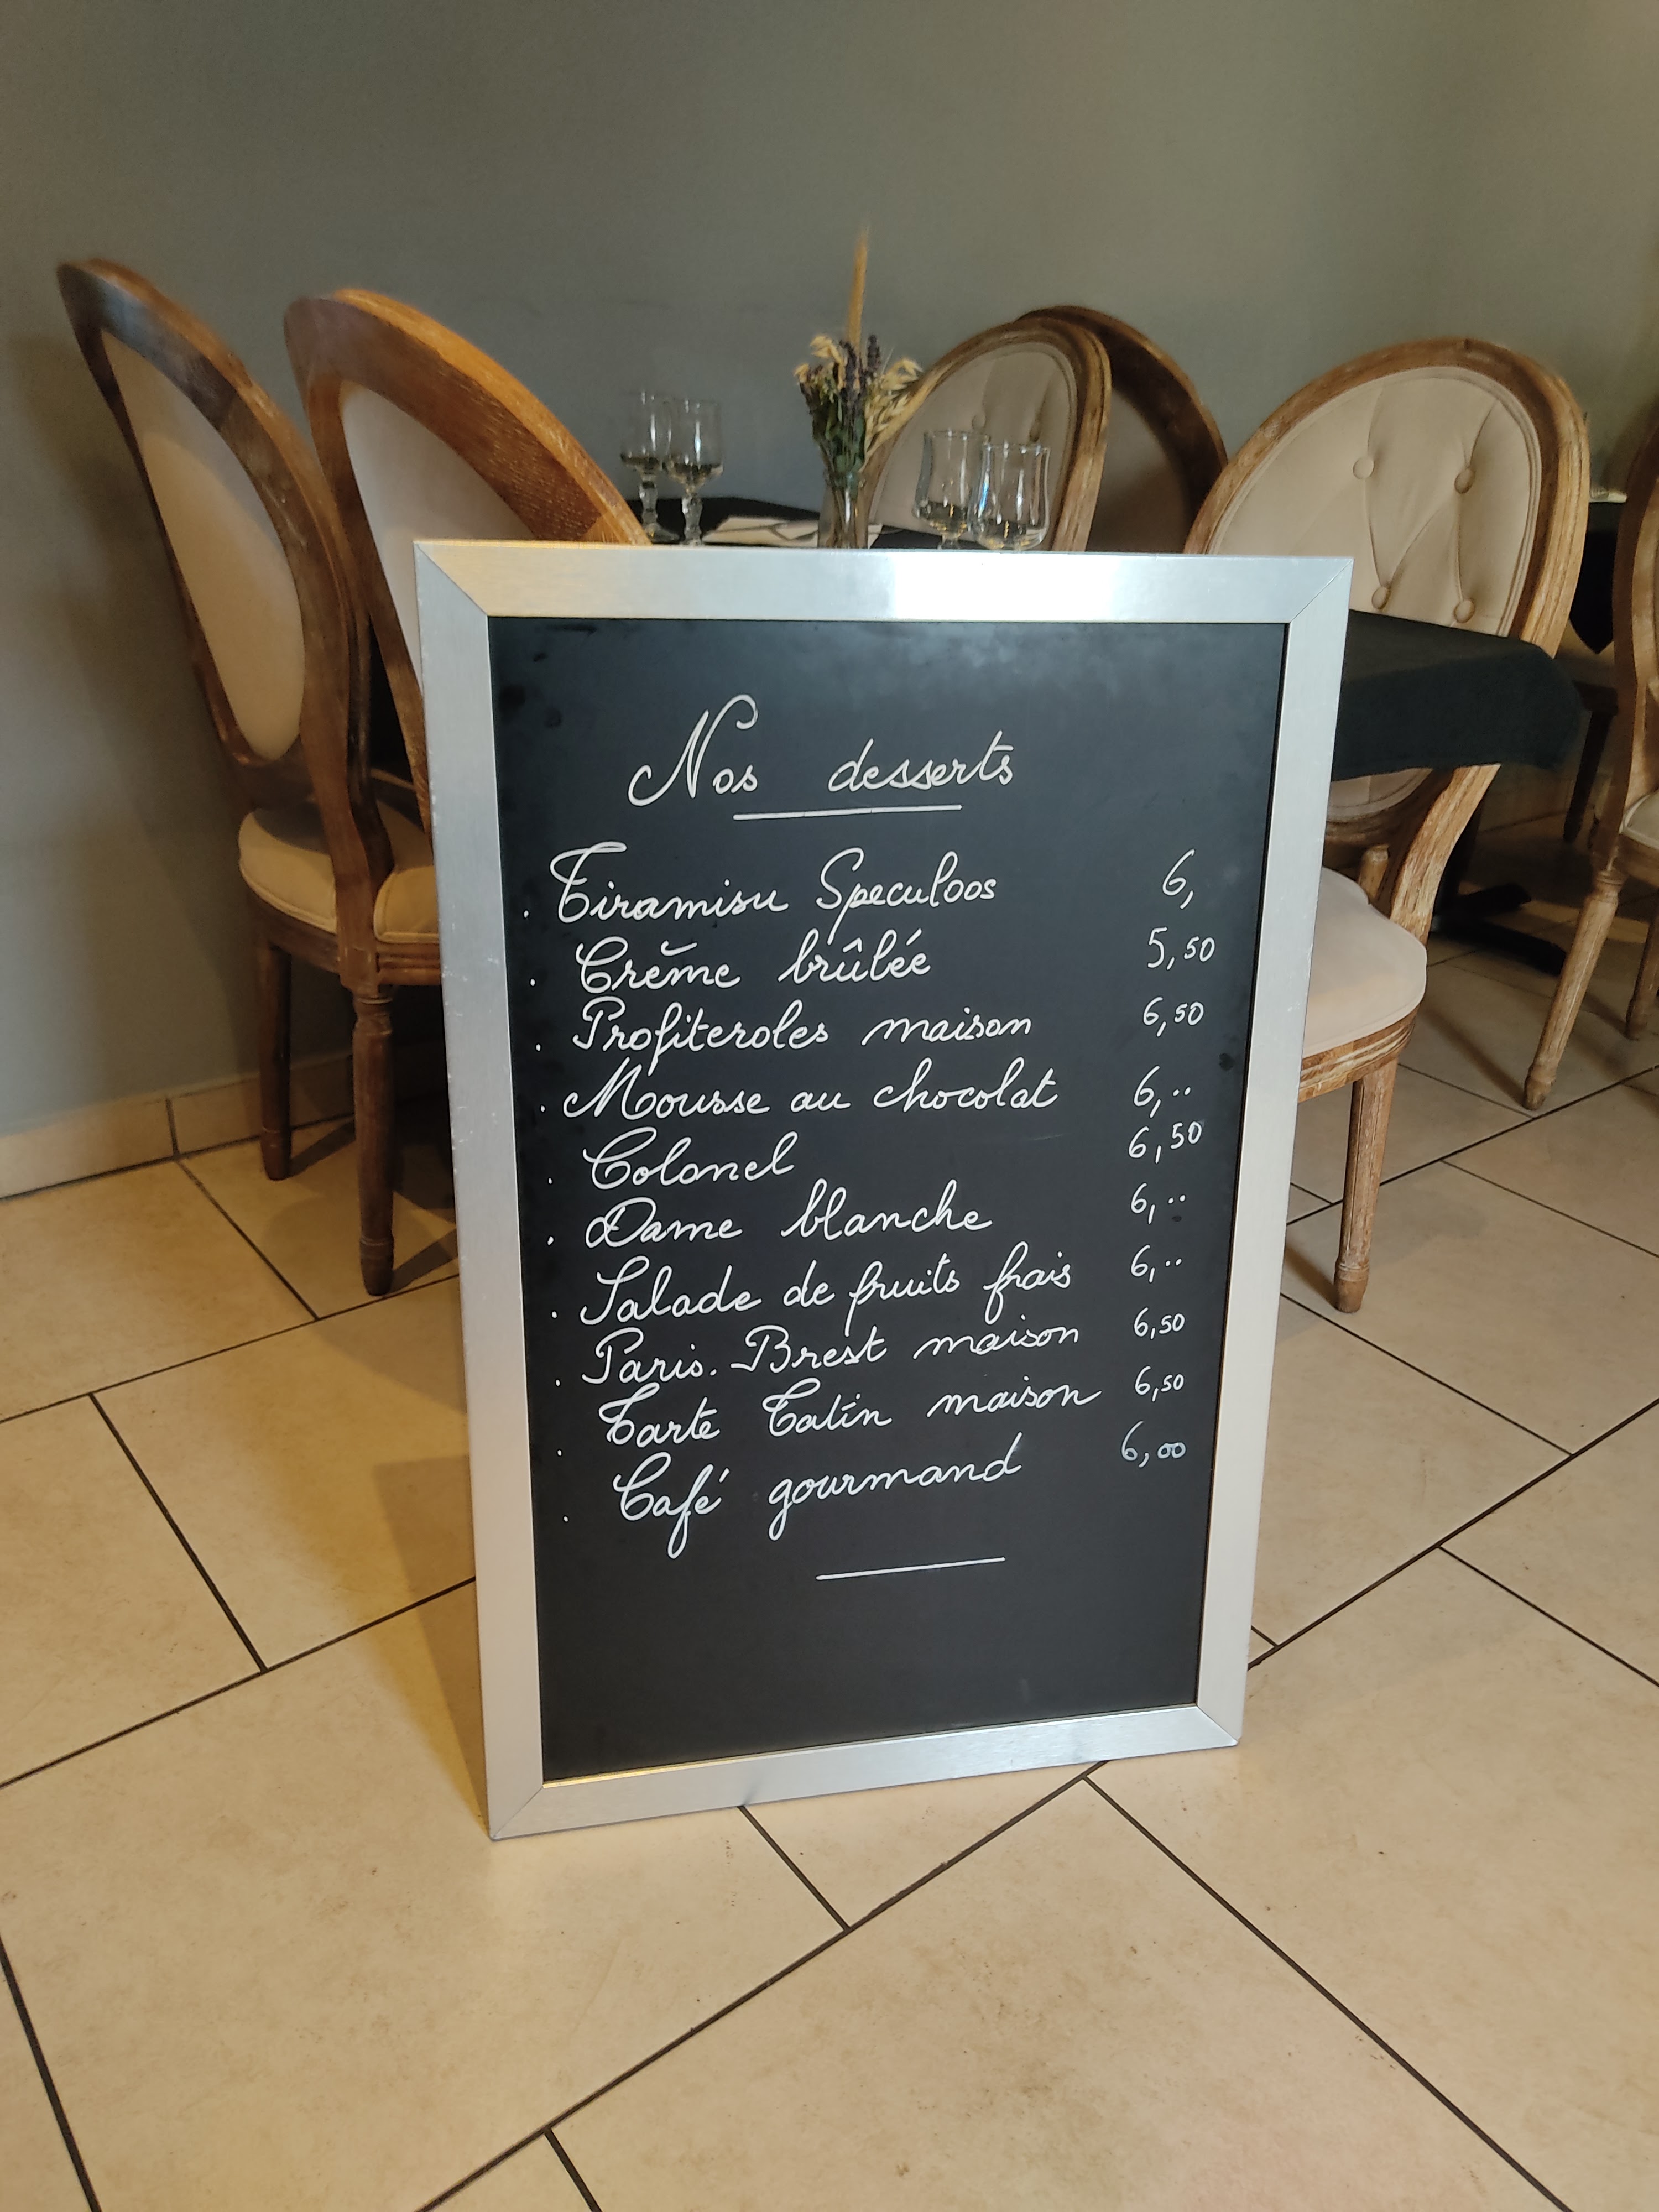 Nos desserts
. Tiramisu Speculoos 6,
. Crème brûlée 5,50
. Profiteroles maison 6,50
. Mousse au chocolat 6,..
. Colonel 6,50
. Dame blanche 6,..
. Salade de fruits frais 6,..
. Paris.-Brest maison 6,50
. Tarte Tatin maison 6,50
. Café gourmand 6,00